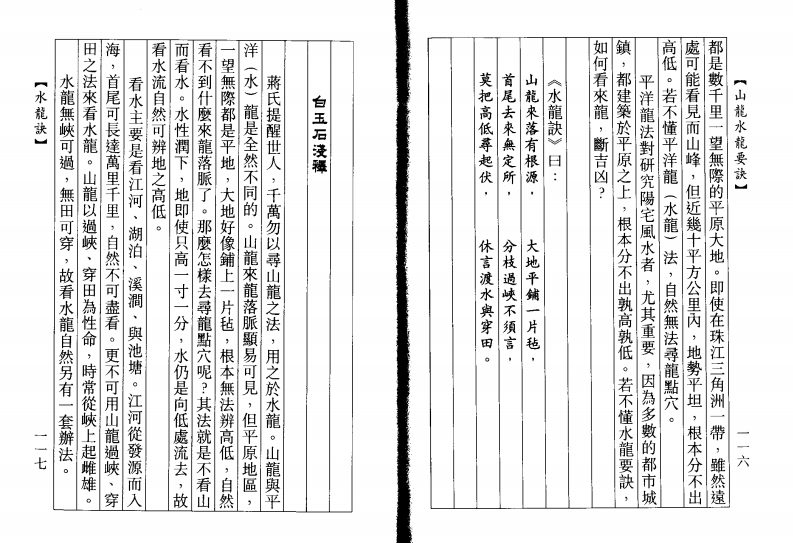 【山龍水龍要訣】
一一六
都是數千里一望無際的平原大地。即使在珠江三角洲一帶，雖然遠
處可能看見而山峰，但近幾十平方公里內，地勢平坦，根本分不出
高低。若不懂平洋龍（水龍）法，自然無法尋龍點穴。
平洋龍法對研究陽宅風水者，尤其重要，因為多數的都市城
鎮，都建築於平原之上，根本分不出孰高孰低。若不懂水龍要訣，
如何看來龍，斷吉凶？
《水龍訣》曰：
山龍來落有根源，　大地平鋪一片毡，
首尾去來無定所，　分枝過峽不須言，
莫把高低尋起伏，　休言渡水與穿田。
白玉石淺釋
蔣氏提醒世人，千萬勿以尋山龍之法，用之於水龍。山龍與平
洋（水）龍是全然不同的。山龍來龍落脈顯易可見，但平原地區，
一望無際都是平地，大地好像鋪上一片毡，根本無法辨高低，自然
看不到什麼來龍落脈了。那麼怎樣去尋龍點穴呢？其法就是不看山
而看水。水性潤下，地即使只高一寸一分，水仍是向低處流去，故
看水流自然可辨地之高低。
看水主要是看江河、湖泊、溪澗、與池塘。江河從發源而入
海，首尾可長達萬里千里，自然不可盡看。更不可用山龍過峽、穿
田之法來看水龍。山龍以過峽、穿田為性命，時常從峽上起雌雄。
水龍無峽可過，無田可穿，故看水龍自然另有一套辦法。
【水龍訣】
一一七